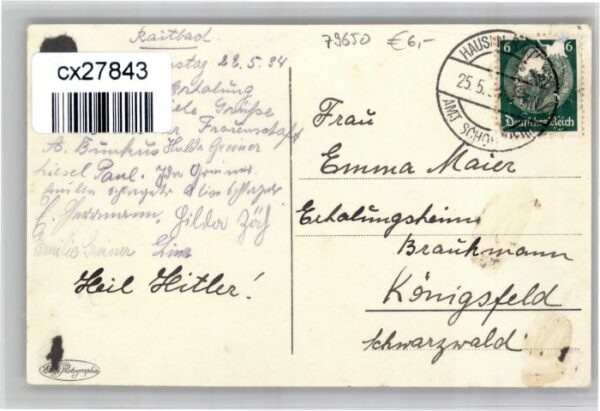 Raitbad
79650 €6,-
cx27843
stag 23.5.34
Erholung
Grüße
Frauenschaft
A. Hulda Greiner
Liesel Paul. Ida Greiner
Emilie
E. Herrmann, Hilda
Emilie Greiner Lina
Heil Hitler!
HAUSEN
25.5.
AMT SCHOPFHEIM
6 6
Deutsches Reich
Frau
Emma Maier
Erholungsheim
Braukmann
Königsfeld
Schwarzwald
Photographie